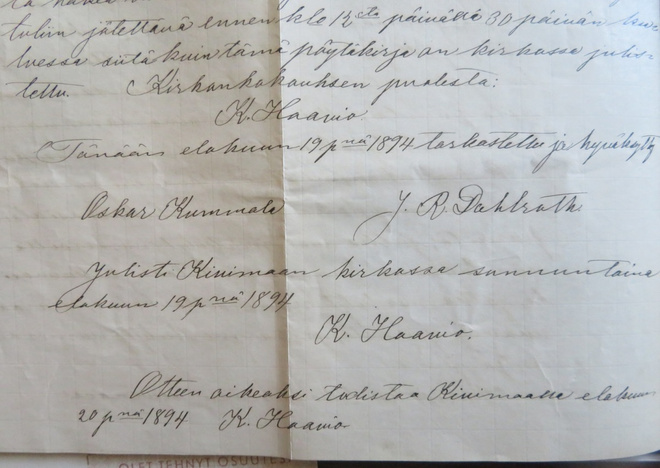 tuliin jätettävä ennen klo 12 sta päivällä 30 päivän ku-
luessa siitä kuin tämä pöytäkirja on kirkossa julis-
tettu. Kirkonkokouksen puolesta:
K. Haavio.
Tänään elokuun 19 pnä 1894 tarkastettu ja hyväksytty
Oskar Kummala
J. R. Dahlroth.
Julisti Kiuimaan kirkossa sunnuntaina
elokuun 19 pnä 1894
K. Haavio.
Otteen oikeaksi todistaa Kiuimaassa elokuun
20 pnä 1894 K. Haavio
OLET TEHNYT OSUUTES